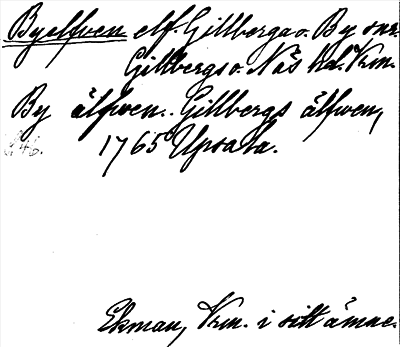 Byelfven elf. Gillberga o. By snr.
Gillbergs o. Näs hd. Vrm.
By älfwen. Gillbergs älfwen,
1765 Upsala.
Ekman, Vrm. i sitt ämne.